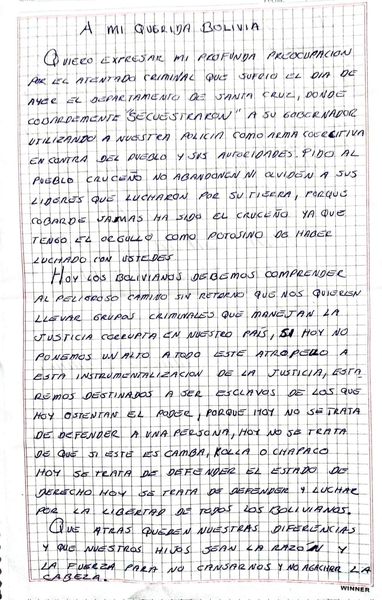 A MI QUERIDA BOLIVIA
QUIERO EXPRESAR MI PROFUNDA PREOCUPACION
POR EL ATENTADO CRIMINAL QUE SUFRIO EL DIA DE
AYER EL DEPARTAMENTO DE SANTA CRUZ, DONDE
COBARDEMENTE "SECUESTRARON" A SU GOBERNADOR
UTILIZANDO A NUESTRA POLICIA COMO ARMA COERCITIVA
EN CONTRA DEL PUEBLO Y SUS AUTORIDADES. PIDO AL
PUEBLO CRUCEÑO NO ABANDONEN NI OLVIDEN A SUS
LIDERES QUE LUCHARON POR SU TIERRA, PORQUE
COBARDE JAMAS HA SIDO EL CRUCEÑO YA QUE
TENGO EL ORGULLO COMO POTOSINO DE HABER
LUCHADO CON USTEDES
HOY LOS BOLIVIANOS DEBEMOS COMPRENDER
AL PELIGROSO CAMINO SIN RETORNO QUE NOS QUIEREN
LLEVAR GRUPOS CRIMINALES QUE MANEJAN LA
JUSTICIA CORRUPTA EN NUESTRO PAIS, SI HOY NO
PONEMOS UN ALTO A TODO ESTE ATROPELLO A
ESTA INSTRUMENTALIZACION DE LA JUSTICIA, ESTA
REMOS DESTINADOS A SER ESCLAVOS DE LOS QUE
HOY OSTENTAN EL PODER, PORQUE HOY NO SE TRATA
DE DEFENDER A UNA PERSONA, HOY NO SE TRATA
DE QUE SI ESTE ES CAMBA, KOLLA O CHAPACO
HOY SE TRATA DE DEFENDER EL ESTADO DE
DERECHO HOY SE TRATA DE DEFENDER Y LUCHAR
POR LA LIBERTAD DE TODOS LOS BOLIVIANOS.
QUE ATRAS QUEDEN NUESTRAS DIFERENCIAS
Y QUE NUESTROS HIJOS SEAN LA RAZÓN Y
LA FUERZA PARA NO CANSARNOS Y NO AGACHAR LA
CABEZA.
WINNER